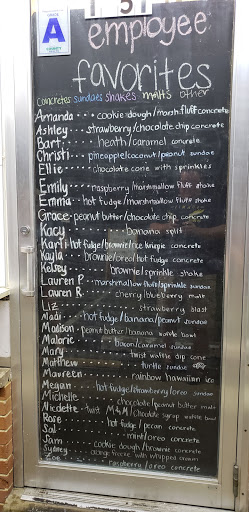 A
employee
favorites
concretes sundaes shakes malts other
Amanda... cookie dough/marsh. fluff concrete
Ashley... strawberry/chocolate chip concrete
Bart... heath/caramel concrete
Christi... pineapple/coconut/peanut sundae
Ellie... chocolate cone with sprinkles
Emily... raspberry/marshmallow fluff shake
Emma... hot fudge/marshmallow fluff shake
Grace... peanut butter/chocolate chip concrete
Kacy... banana split
Karli... hot fudge/brownie/rice krispie concrete
Kayla... brownie/oreo/hot fudge concrete
Kelsey... brownie/sprinkle shake
Lauren P... marshmallow fluff/sprinkle sundae
Lauren R... cherry/blueberry malt
Liz... strawberry blast
Madi... hot fudge/banana/peanut sundae
Madison... peanut butter/banana waffle bowl
Malorie... bacon/caramel sundae
Mary... twist waffle dip cone
Matthew... turtle sundae
Maureen... rainbow hawaiian ice
Megan... hot fudge/strawberry/oreo sundae
Michelle... chocolate/peanut butter malt
Nicdette... twist M&M/chocolate syrup waffle bowl
Rose... hot fudge/pecan concrete
Sal... mint/oreo concrete
Sam... cookie dough/brownie concrete
Sydney... orange freeze with whipped cream
Zoe... raspberry/oreo concrete